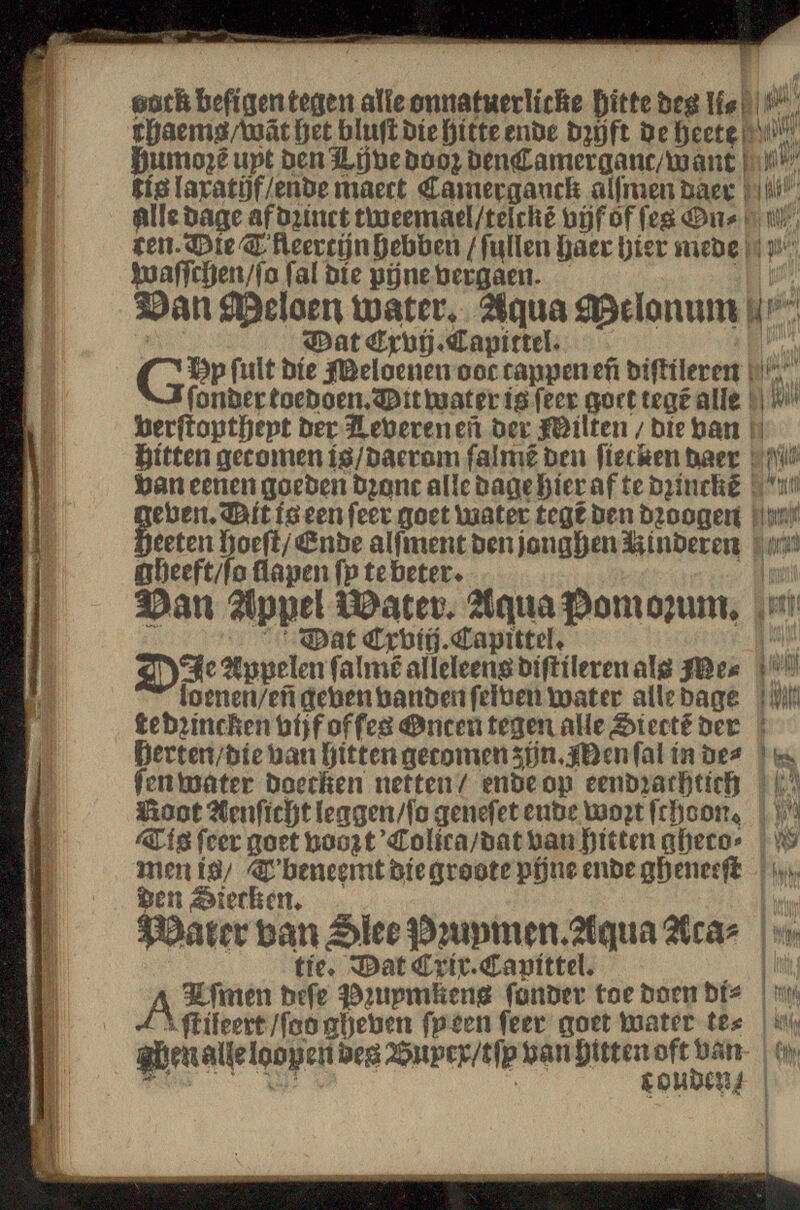 oock besigen tegen alle onnatuerlicke hitte des li⸗
chaems/wãt het blust die hitte ende dꝛijft de heete
humoꝛẽ uyt den Lijve dooꝛ den Camerganc/want
tis laxatijf/ende maect Camergauck alsmen daer
alle dage af dꝛinct tweemael/telckẽ vijf of ses On⸗
cen. Die T'fleercijn hebben / sullen haer hier mede
wasschen/so sal die pijne vergaen.
Van Meloen water. Aqua Melonum
Dat Cxvij. Capittel.
GHy sult die Meloenen ooc cappen eñ distileren
sonder toedoen. Dit water is seer goet tegẽ alle
verstoptheyt der Leveren eñ der Milten / die van
hitten gecomen is/daerom salmẽ den siecken daer
van eenen goeden dꝛanc alle dage hier af te dꝛinckẽ
geven. Dit is een seer goet water tegẽ den dꝛoogen
heeten hoest/ Ende alsment den jonghen Kinderen
gheeft/so slapen sy te beter.
Van Appel Water. Aqua Pomoꝛum.
Dat Cxviij. Capittel.
DJe Appelen salmẽ alleleens distileren als Me⸗
loenen/eñ geven vanden selven water alle dage
te dꝛincken vijf of ses Oncen tegen alle Siectẽ der
herten/die van hitten gecomen zijn. Men sal in de⸗
sen water doecken netten/ ende op eendꝛachtich
Root Aensicht leggen/so geneset ende woꝛt schoon.
Tis seer goet vooꝛ t'Colica/dat van hitten gheco⸗
men is/ T'beneemt die groote pijne ende gheneest
den Siecken.
Water van Slee Pꝛuymen. Aqua Aca⸗
tie. Dat Cxix. Capittel.
ALsmen dese Pꝛuymkens sonder toe doen di⸗
stileert /soo gheven sy een seer goet water te⸗
ghen alle loopen des Buycx/tsy van hitten oft van
couden/